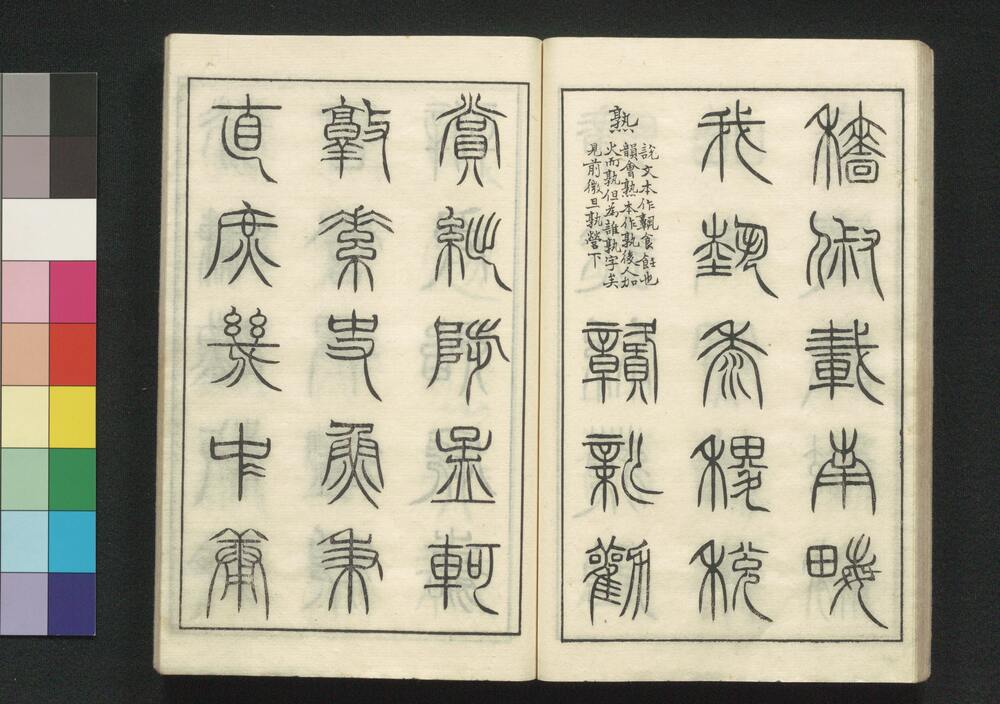 穡俶載南畝
我埶黍稷稅
熟
說文本作食飪也
韻會熟本作孰後人加
火而孰但為誰孰字矣
見前微旦孰營下
贛新勸
賞絀陟孟軻
敦素史魚秉
直庶幾中庸